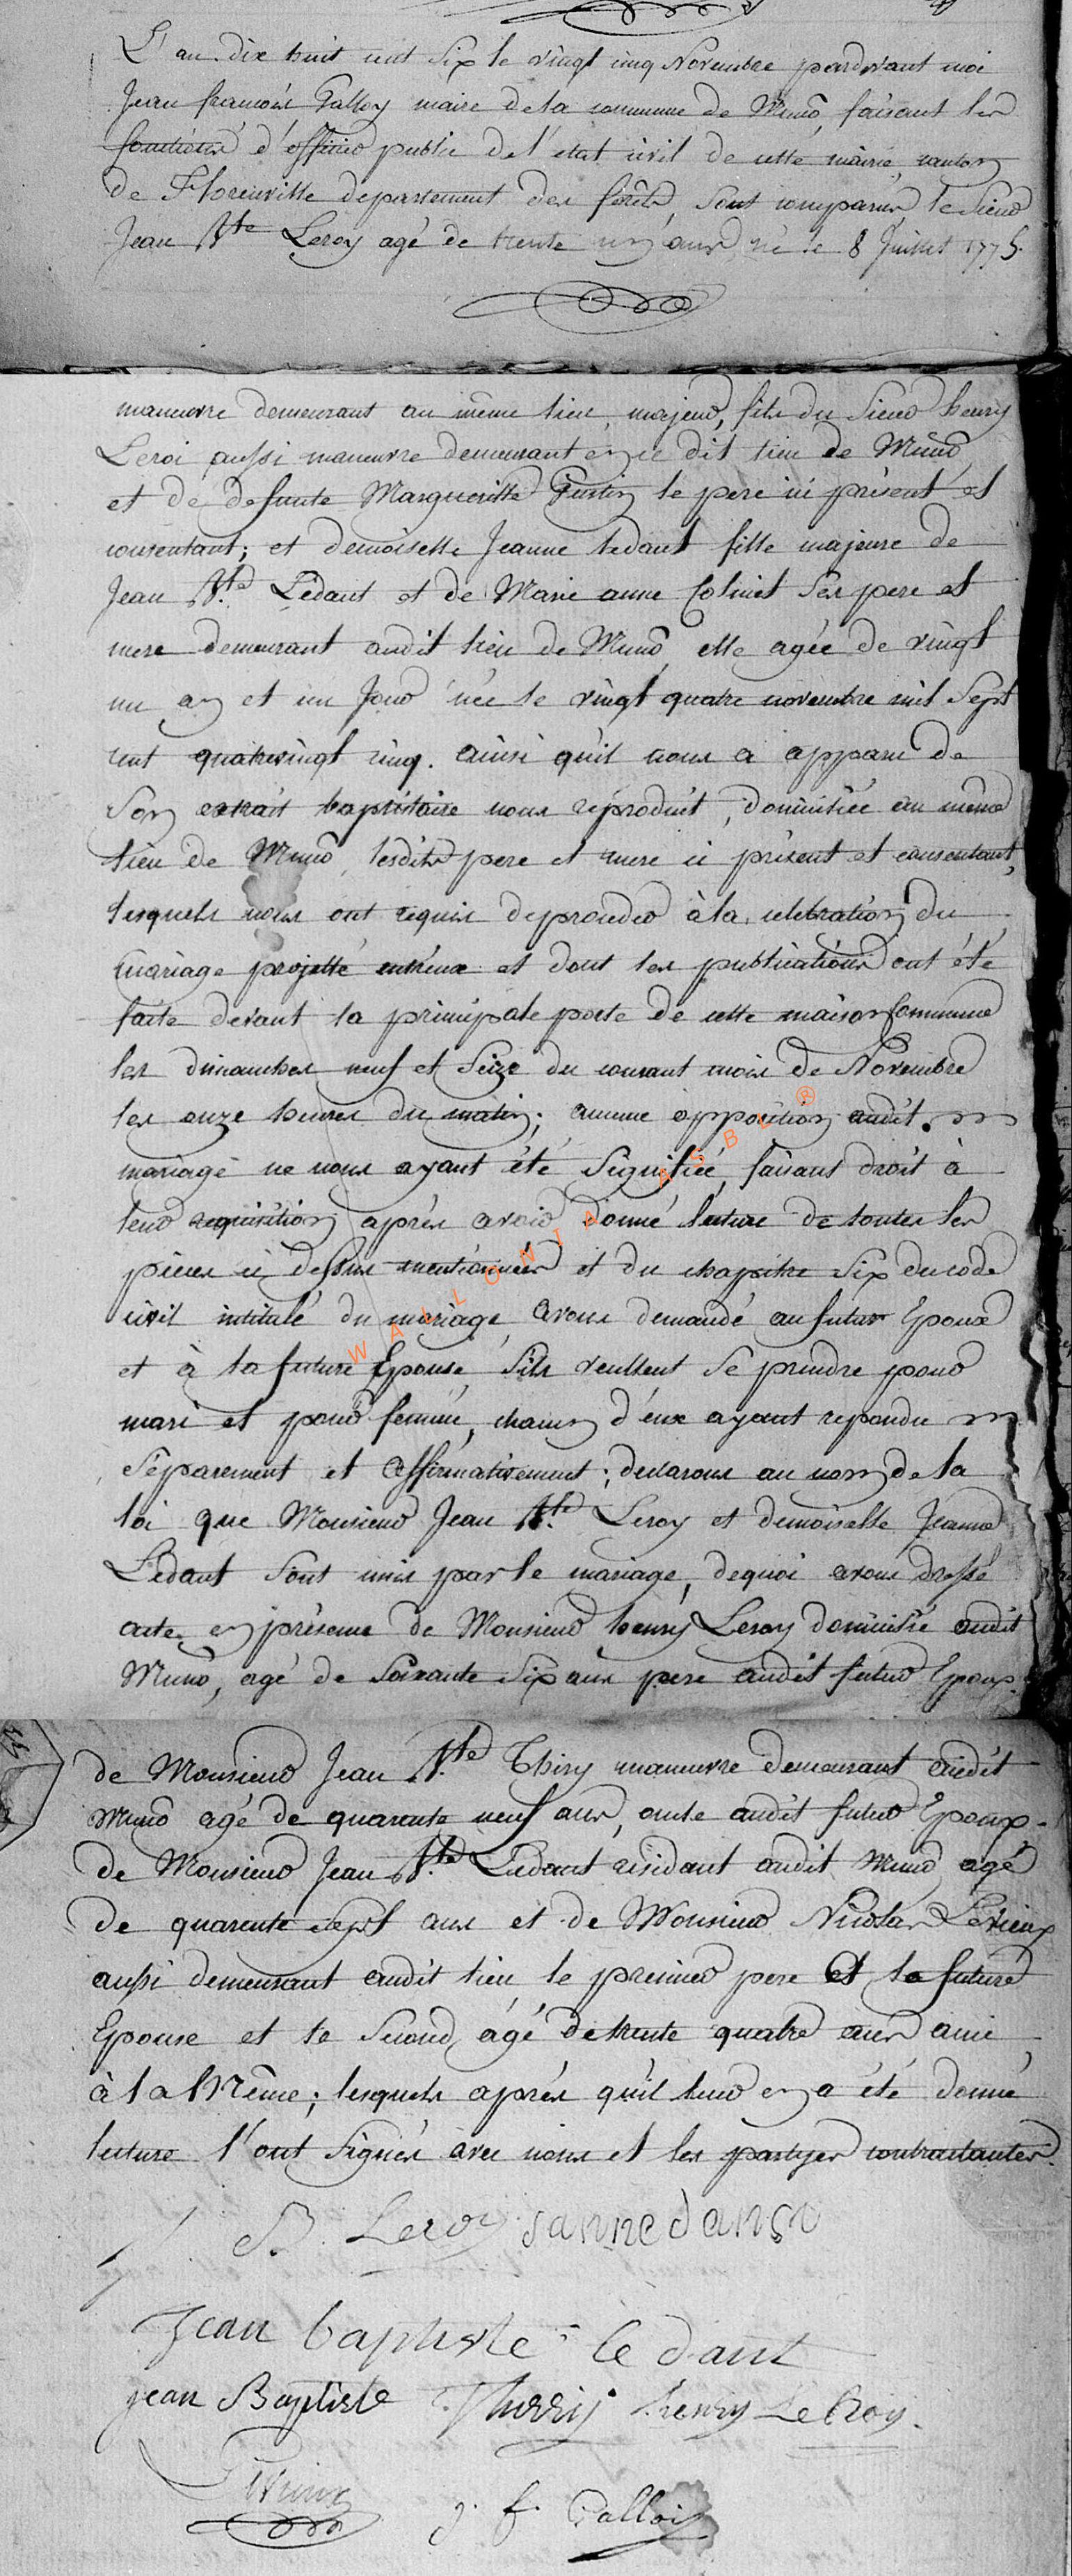 L'an dix huit cent six le vingt cinq Novembre pardevant moi
Jean françois Galloy maire de la commune de Muno, faisant les
fonctions d'officier public de l'état civil de cette mairie, canton
de Florenville departement des forêts, sont comparus, le Sieur
Jean Bte Leroy agé de trente un ans, né le 8 Juillet 1775.
manœuvre demeurant au même lieu, majeur, fils du Sieur henry
Leroi aussi manœuvre demeurant en ce dit lieu de Muno,
et de defunte Margueritte le pere ici présent et
consentant; et demoiselle Jeanne Ledant fille majeure de
Jean Bte Lédant et de Marie anne Colinet Ses pere et
mere demeurant audit lieu de Muno, elle agée de vingt
un an et un Jour née le vingt quatre novembre mil Sept
cent quatrevingt cinq. ainsi qu'il nous a apparu de
Son extrait baptistaire nous réproduit, domiciliée au même
lieu de Muno, lesdits pere et mere ici présent et consentant,
lesquels nous ont requis de proceder à la celebration du
mariage projetté entreux et dont les publications ont été
faite devant la principale porte de cette maison Commune
les dimanches neuf et Seize du courant mois de Novembre
les onze heures du matin; aucune opposition audit.
mariage ne nous ayant été Signifiée, faisant droit à
leur requisition après avoir donné lecture de toutes les
pièces ci dessus mentionnées et du chapitre Six du code
civil intitulé du mariage, avons demandé au futur Epoux
et à la future Epouse, S'ils veullent Se prendre pour
mari et pour femme, chacun d'eux ayant repondu
Séparement et affirmativement; declarons au nom de la
loi que Monsieur Jean Bte Leroy et demoiselle Jeanne
Lédant Sont unis par le mariage, dequoi avons dressé
acte en présence de Monsieur henry Leroy domicilié audit
Muno, agé de Soixante Six ans pere audit futur Epoux.
de Monsieur Jean Bte Thiry manœuvre demeurant audit
Muno agé de quarente neuf ans, oncle audit futur Epoux.
de Monsieur Jean Bte Lédant residant audit Muno, agé
de quarente Sept ans et de Monsieur Nicolas Levieux
aussi demeurant audit lieu, le premier pere et la future
Epouse et le Second, âgé de trente quatre ans ami
à la Même; lesquels après qu'il leur en a été donné
lecture l'ont Signés avec nous et les partyes contractantes.
J B Leroy
Jean baptiste le dant
jean Baptiste Thirrij henry Le Roy.
Levieux
j. f. Galloy
WALLONIA ASBL ®